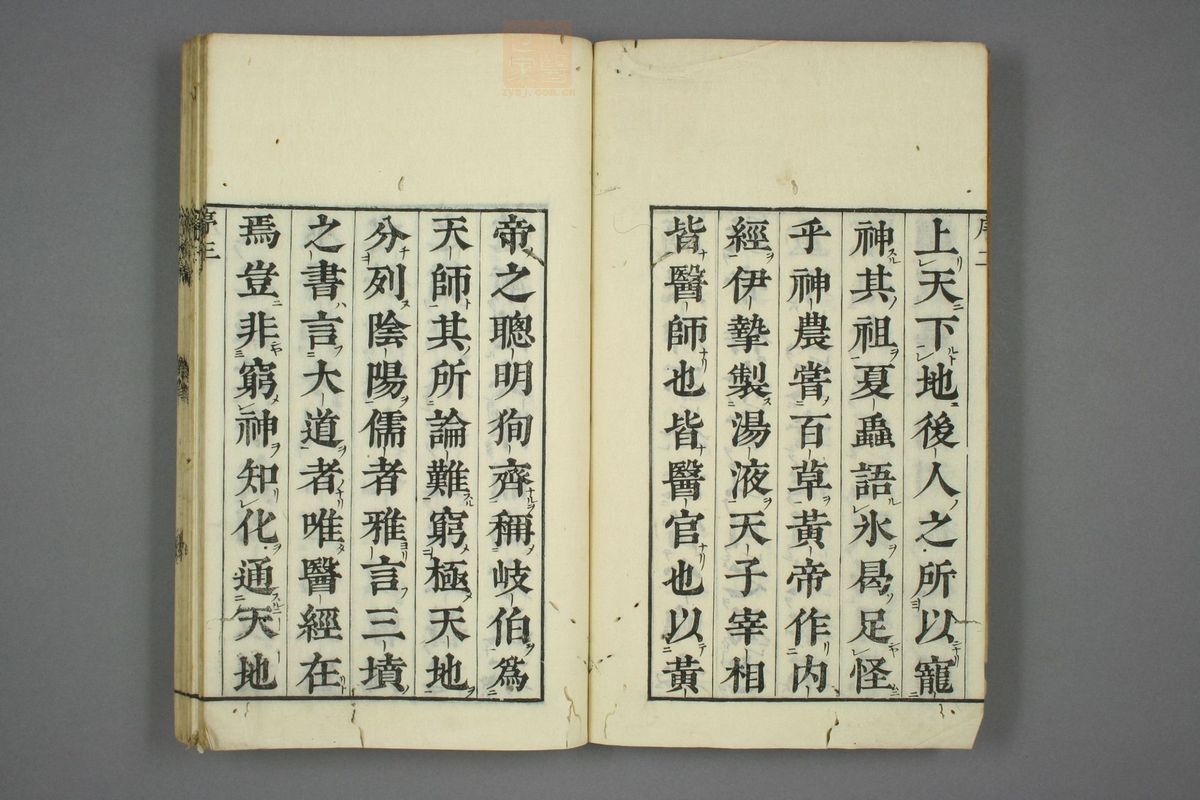 序二
上天下地後人之所以寵
神其祖夏蟲語氷曷足怪
乎神農嘗百草黃帝作内
經伊摯製湯液天子宰相
皆醫師也皆醫官也以黃
帝之聰明狥齊稱岐伯為
天師其所論難窮極天地
分列陰陽儒者雅言三墳
之書言大道者唯醫經在
焉豈非窮神知化通天地
序三
zysj.com.cn